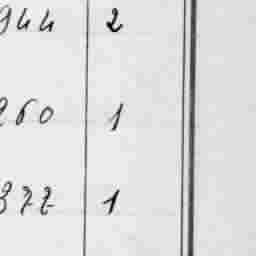 944 2
260 1
377 1